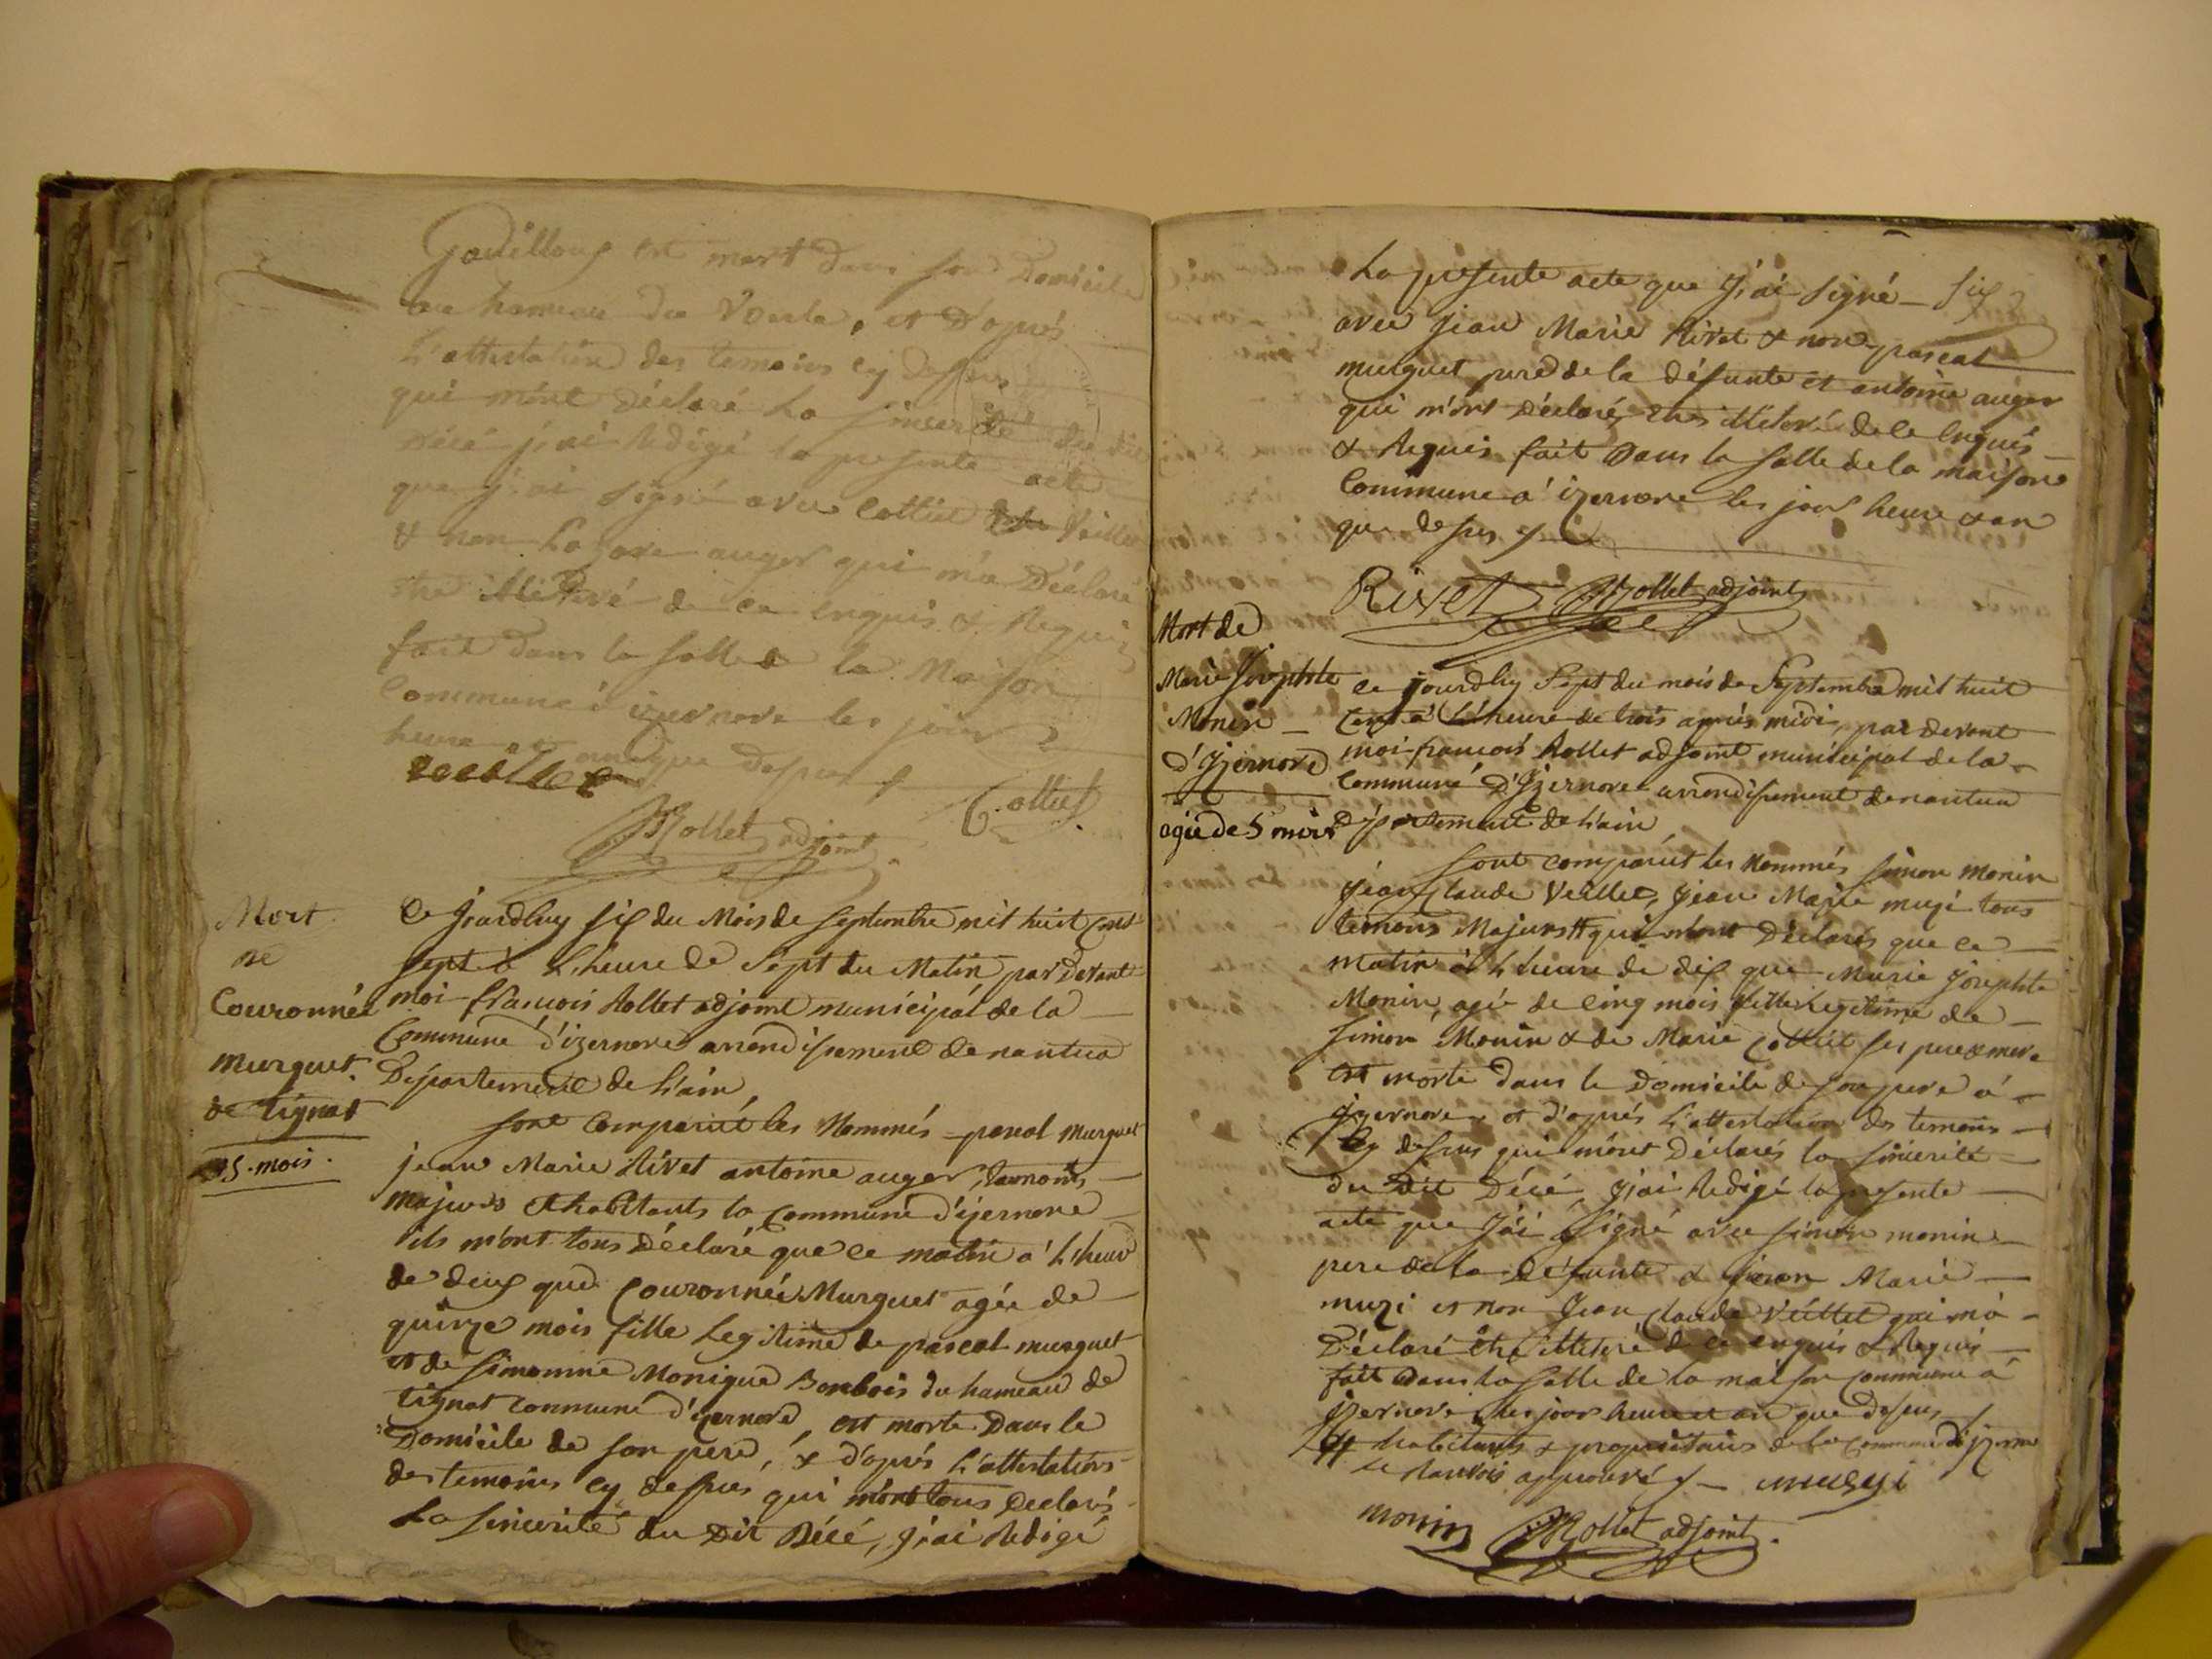 Gavilloux est mort dans son Domicile
au hameau du Voerle, et d'après
L'attestation des temoins cy dessus
qui m'ont Déclaré La sincerité du dit
Décé j'ai Redigé la presente acte
que j'ai signé avec Cottiet Veillet
& non Lazare auger qui m'a Déclaré
etre illiteré de ce enquis & Requis
fait dans la salle de la Maison
Commune d'izernore les jour
heure et an que dessus
veillet
Cottiet
Rollet adjoint
Mort
de
Couronnée
Murguet
de tignat
15. mois.
Ce Jourdhuy six du Mois de septembre mil huit cent
sept à L'heure de sept du Matin, par devant
moi francois Rollet adjoint municipal de la
Commune d'izernore arrondissement de nantua
Departement de L'ain
sont Comparut les Nommés pascal Murguet
jean Marie Rivet antoine auger, temoins
majurs & habitants la Commune d'izernore
ils m'ont tous Déclaré que ce matin à L'heure
de deux que Couronnée Murguet agée de
quinze mois fille Legitime de pascal murguet
et de simonne Monique Bonbois du hameau de
tignat Commune d'izernore, est morte Dans le
Domicile de son pere, & d'après L'attestations
des temoins cy dessus qui m'ont tous Declarés
La sincerité du Dit Décé, J'ai Redigé
La presente acte que J'ai signé six
avec Jean Marie Rivet & non pascal
murguet pere de la défunte et antoine auger
qui m'ont Déclaré etre illiteré de ce Enquis
& Requis fait Dans la salle de la maison
Commune à izernore les jour heure & an
que dessus
Rivet Rollet adjoint
Mort de
Marie Josephte
Monin
d'Izernore
agée de 5 mois
Ce jourdhuy Sept du mois de Septembre mil huit
Cent à L'heure de trois après midi, par devant
moi francois Rollet adjoint municipal de la
Commune d'Izernore arrondissement de nantua
département de L'ain
sont comparut les Nommés simon Monin
Jean Claude Veillet, Jean Marie muzi tous
temoins Majurs # qui m'ont Déclarés que ce
matin à L'heure de dix que Marie Josephte
Monin, agée de cinq mois fille Legitime de
simon Monin & de Marie Cottiet ses pere & mere
est morte dans le Domicile de son pere à
Izernore et d'après L'attestation des temoins
cy dessus qui m'ont Déclarés la sincerité
du Dit Décé, J'ai Redigé la presente
acte que J'ai signé avec simon monin
pere de la Défunte & Jean Marie
muzi et non Jean Claude Veillet qui m'a
Déclaré être illiteré de ce enquis & Requis
fait Dans la salle de la maison Commune à
izernore les jour heure et an que dessus
# habitants & propriétaires de la Commune d'izernore
Le Ranvois approuvé muzyi
monin Rollet adjoint.